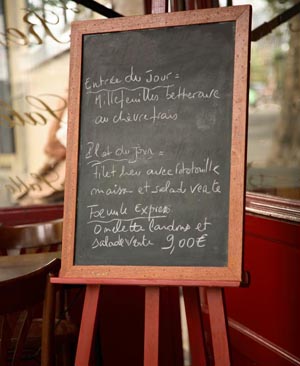 Entrée du Jour =
Millefeuilles betterave
au chèvre frais
Plat du jour =
Filet bier avec ratatouille
maison et salade verte
Formule Express
Omelette lardons et
salade verte 9,00€